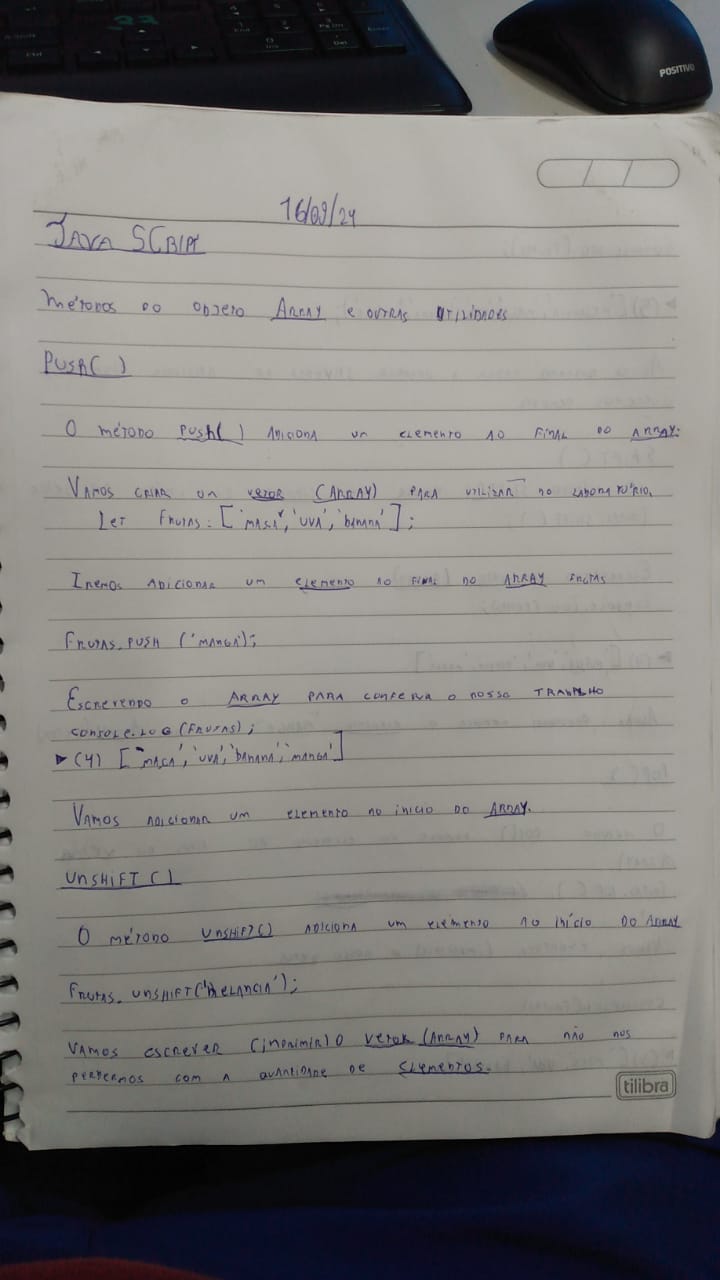 POSITIVO
16/09/24
JAVA SCRIPT
MÉTODOS DO OBJETO ARRAY E OUTRAS UTILIDADES
PUSH( )
O MÉTODO PUSH( ) ADICIONA UM ELEMENTO AO FINAL DO ARRAY.
VAMOS CRIAR UM VETOR (ARRAY) PARA UTILIZAR NO LABORATÓRIO.
LET FRUTAS = ['MAÇA', 'UVA', 'BANANA'];
IREMOS ADICIONAR UM ELEMENTO AO FINAL DO ARRAY FRUTAS
FRUTAS.PUSH ('MANGA');
ESCREVENDO O ARRAY PARA CONFERIR O NOSSO TRABALHO
CONSOLE.LOG (FRUTAS);
▶ (4) ['MAÇA', 'UVA', 'BANANA', 'MANGA']
VAMOS ADICIONAR UM ELEMENTO NO INICIO DO ARRAY.
UNSHIFT( )
O MÉTODO UNSHIFT( ) ADICIONA UM ELEMENTO AO INÍCIO DO ARRAY
FRUTAS.UNSHIFT('MELANCIA');
VAMOS ESCREVER (IMPRIMIR) O VETOR (ARRAY) PARA NÃO NOS
PERDERMOS COM A QUANTIDADE DE ELEMENTOS.
tilibra